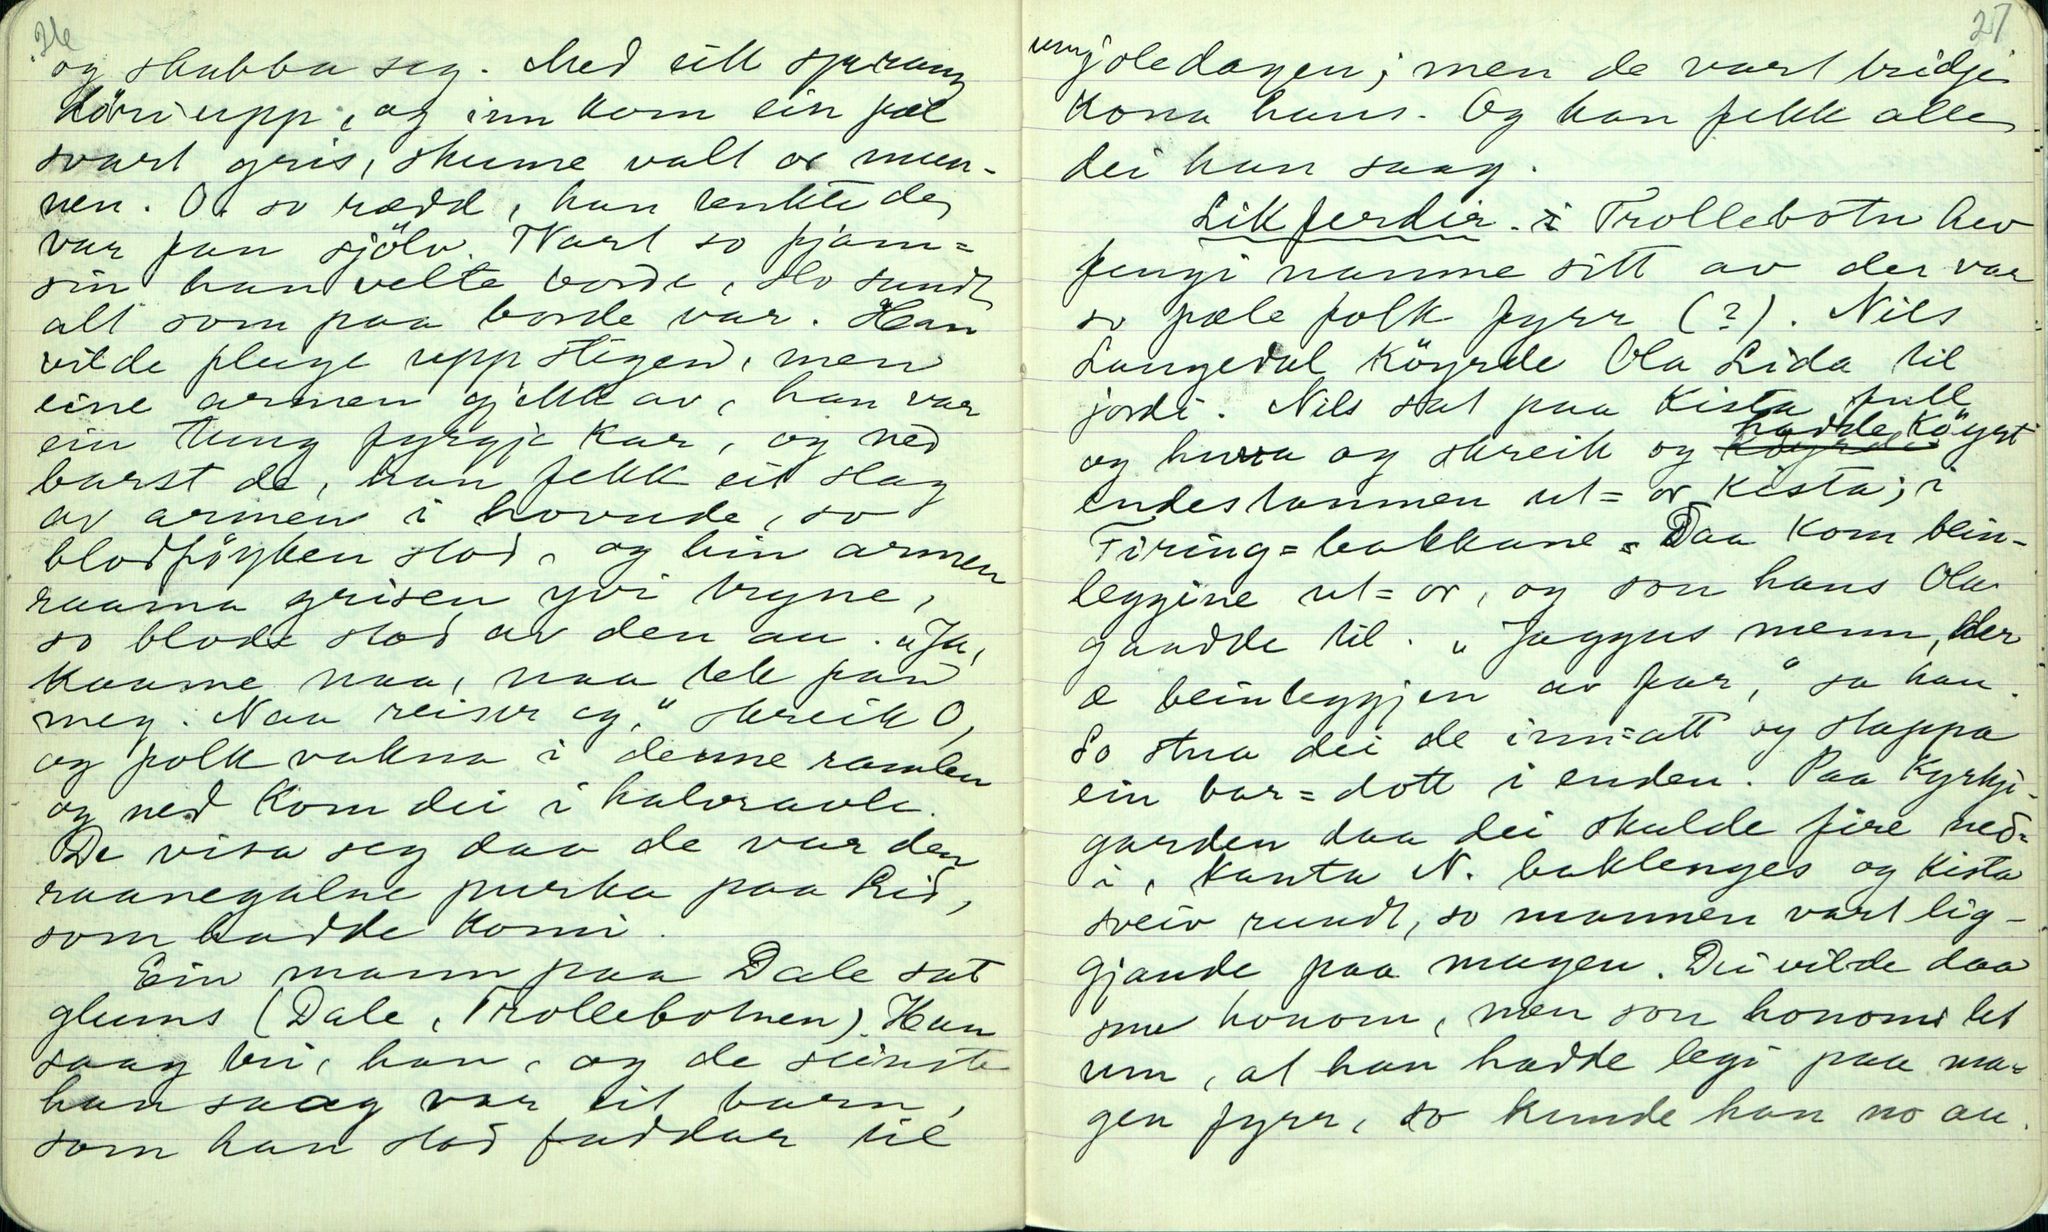 26
og skubba seg. Med eitt sprang
döri upp, og inn kom ein fæl
svart gris, skume valt or mun-
nen. O. so rædd, han tenkte de
var fan sjölv. Vart so fjam=
sin han velte borde, slo sundt
alt som paa borde var. Han
vilde fluge upp stigen, men
eine armen gjekk av, han var
ein tung fyrgje kar, og ned
barst de, han fekk eit slag
av armen i hovude, so
blodföyken stod, og hin armen
raama grisen yvi tryne,
so blode stod av den au. "Ja,
kaame naa, naa tek fan
meg. Naa reiser eg," skreik O,
og folk vakna i denne ramlen
og ned kom dei i halvraale.
De visa seg daa de var den
raanegalne purka paa Lid,
som hadde komi.
Ein mann paa Dale sat
glums (Dale, Trollebotnen). Han
saag tri, han, og de seinste
han saag var eit barn,
som han stod faddar til
27
umjoledagen; men de vart tridje
kona hans. Og han fekk alle
dei han saag.
Likferdir. i Trollebotn hev
fengi namne sitt av der var
so fæle folk fyrr (?). Nils
Langedal köyrde Ola Lida til
jordi. Nils sat paa kista full
og hurra og skreik og hadde köyrt
endestammen ut= or kista; i
Firing=bakkane. Daa kom bein-
leggine ut=or, og son hans Ola
gaadde til. "Jaggus menn, her
æ beinleggjen av far," sa han.
So stua dei de inn=att og stappa
ein bar=dott i enden. Paa kyrkji-
garden daa dei skulde fire ned=
i, kanta N. baklenges og kista
sveiv rundt, so mannen vart lig-
gjande paa magen. Dei vilde daa
snu honom, men son honoms let
um, at han hadde legi paa ma=
gen fyrr, so kunde han no au.